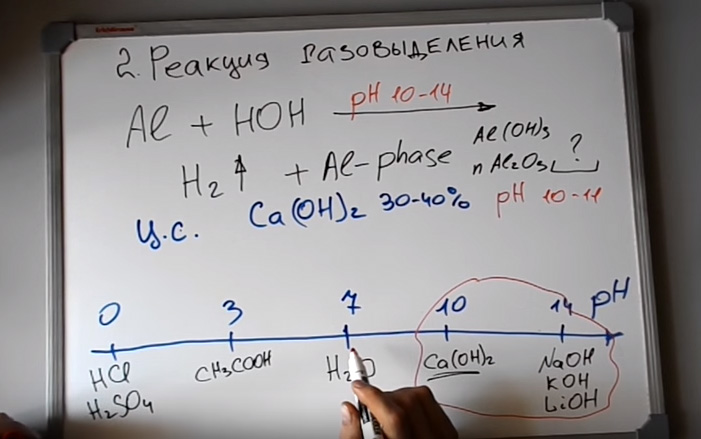 2. Реакция газовыделения
Al + HOH pH 10-14
H2↑ + Al-phase Al(OH)3
n Al2O3 ?
Ц.С. Ca(OH)2 30-40% pH 10-11
0 3 7 10 14 pH
HCl CH3COOH H2O Ca(OH)2 NaOH
H2SO4 KOH
LiOH